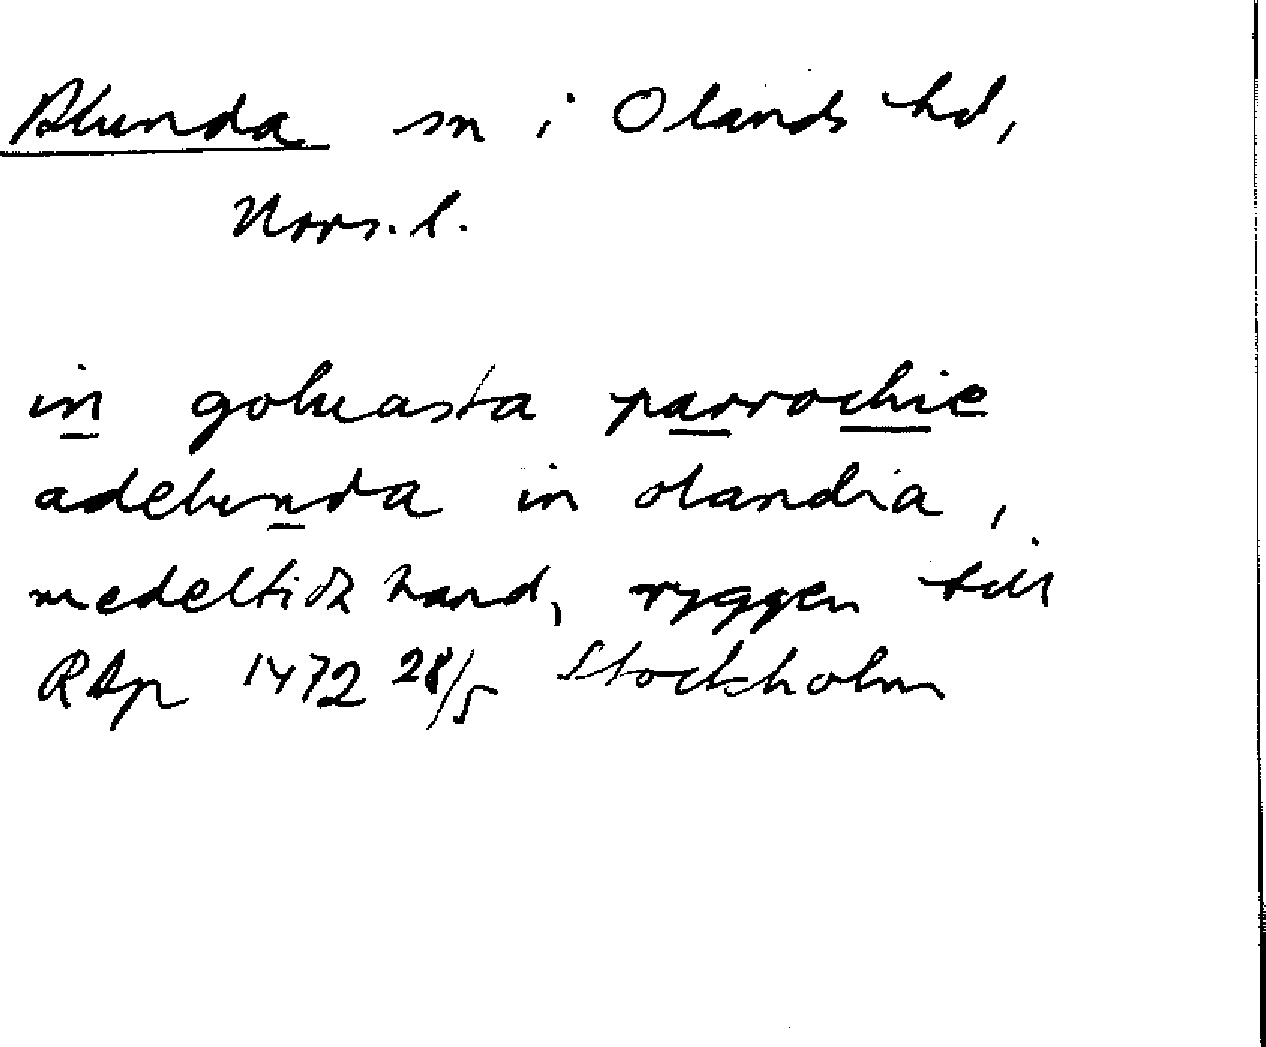 Alunda sn i Olands hd,
Upps. l.
in goluasta parrochie
adelunda in olandia,
medeltida hand, ryggen till
RAp 1472 28/5 Stockholm